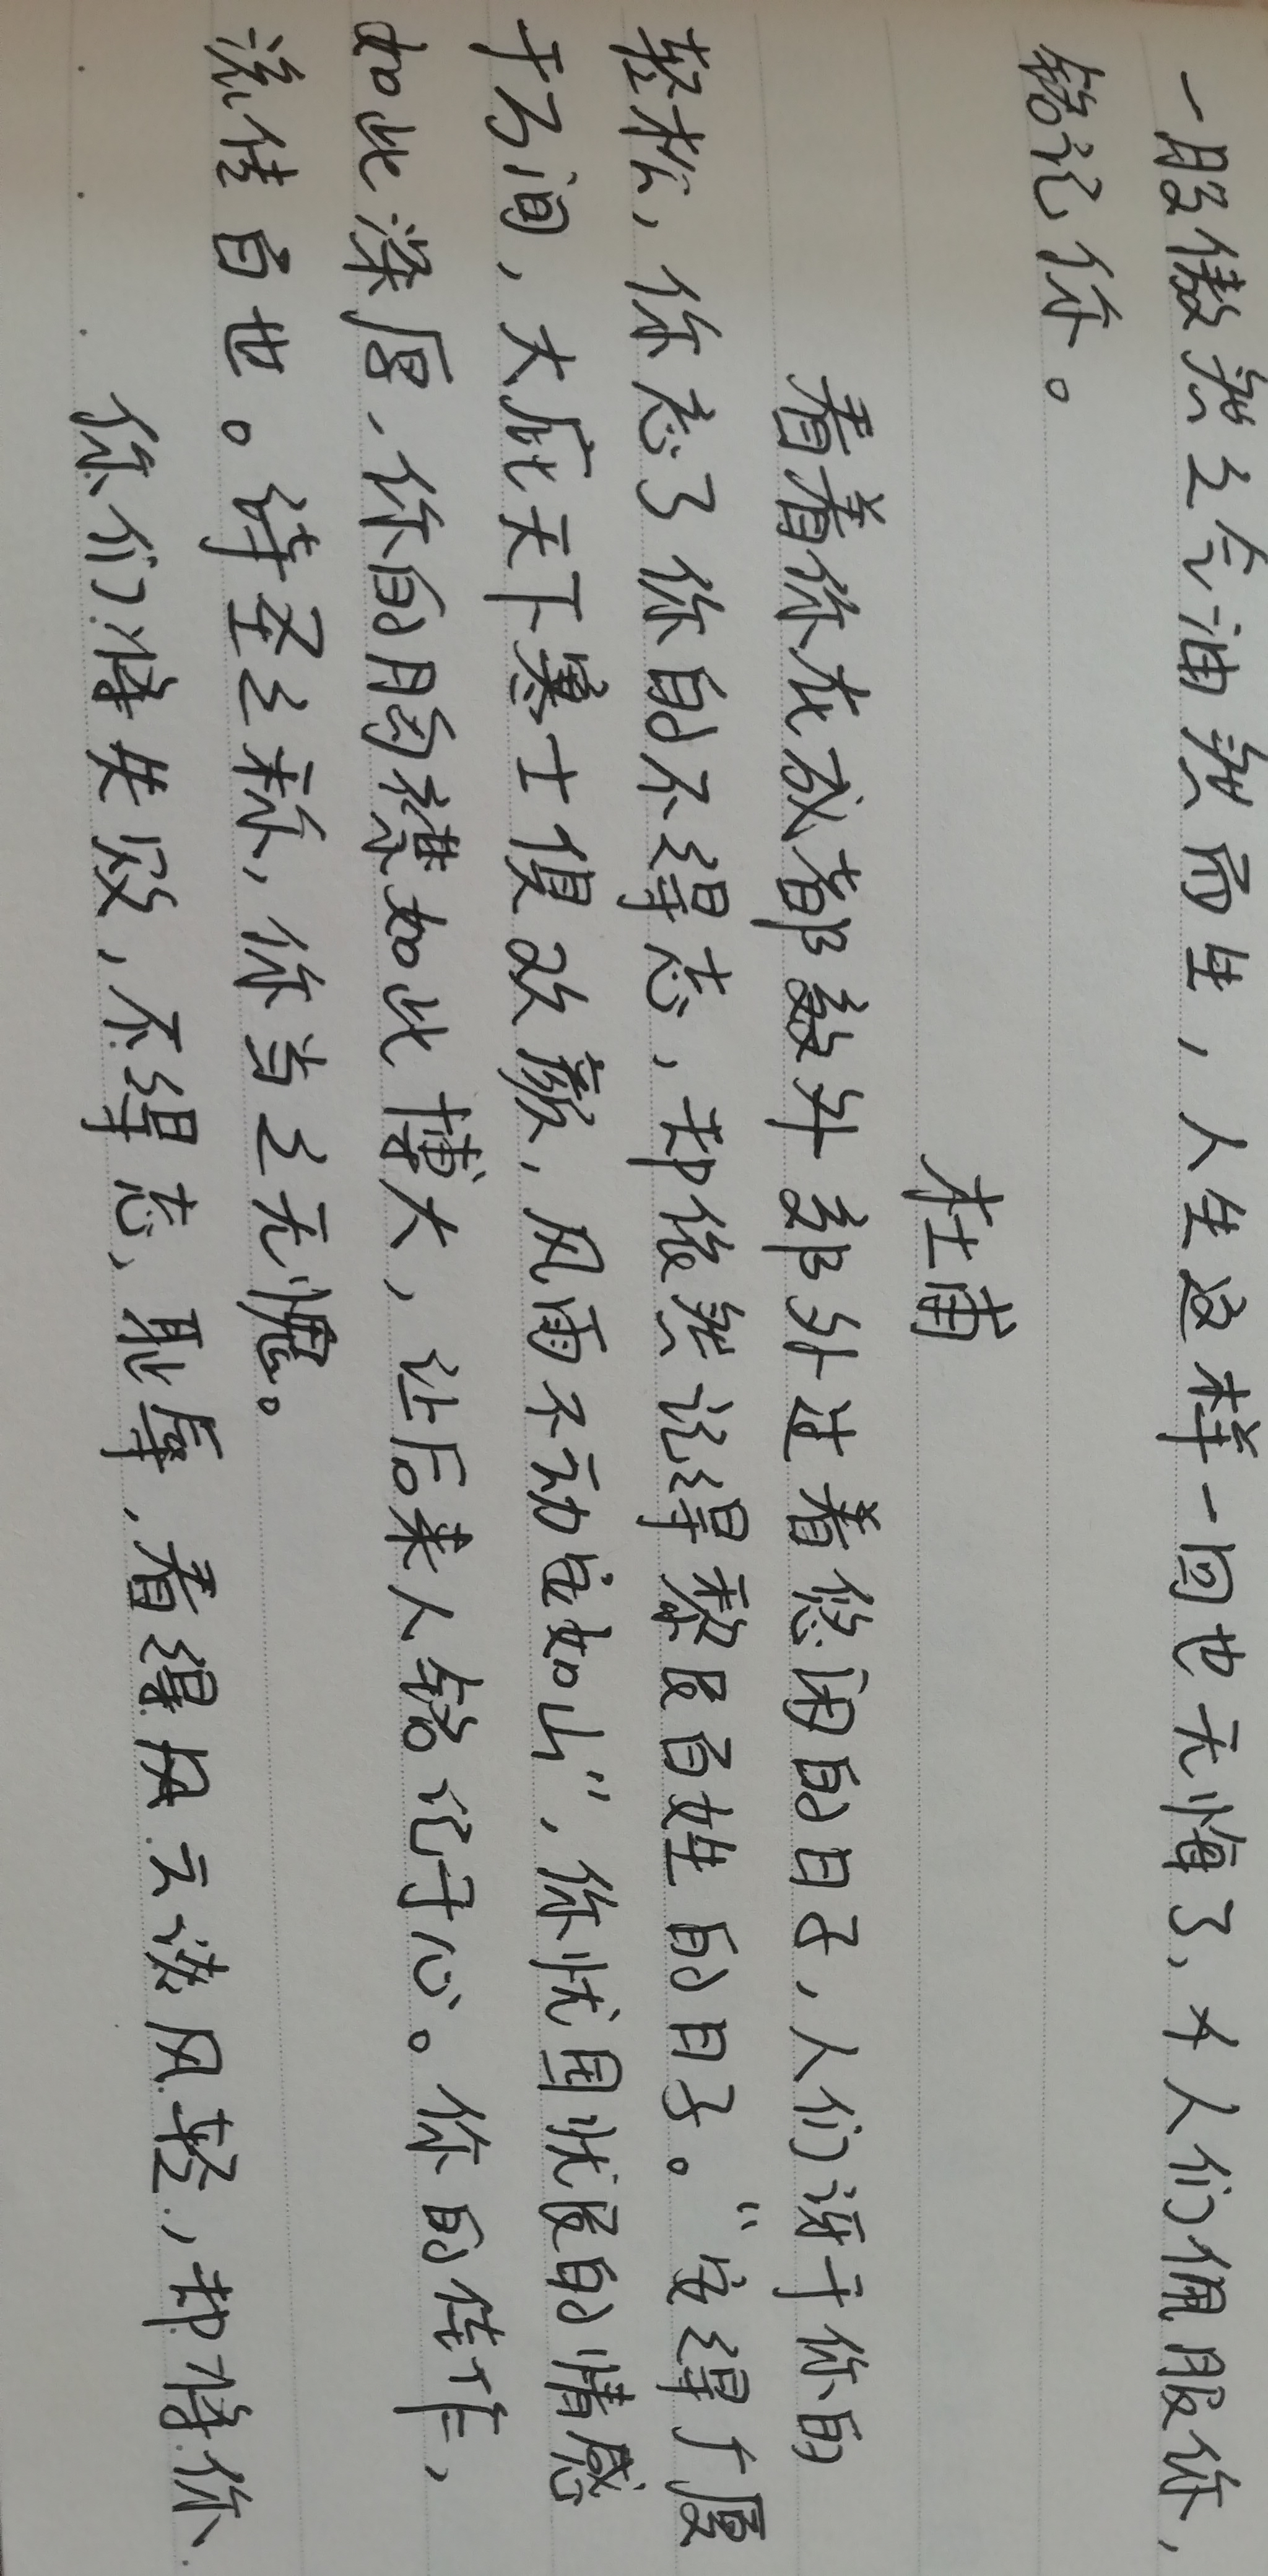 一股傲然之气油然而生，人生这样一回也无悔了，令人们佩服你，
铭记你。
杜甫
看着你在成都郊外过着悠闲的日子，人们讶于你的
轻松，你忘了你的不得志，却依然记得黎民百姓的日子。“安得广厦
千万间，大庇天下寒士俱欢颜，风雨不动安如山”，你忧国忧民的情感
如此深厚，你的胸襟如此博大，让后来人铭记于心。你的佳作，
流传百世。诗圣之称，你当之无愧。
你们将失败，不得志，耻辱，看得风云淡风轻，却将你